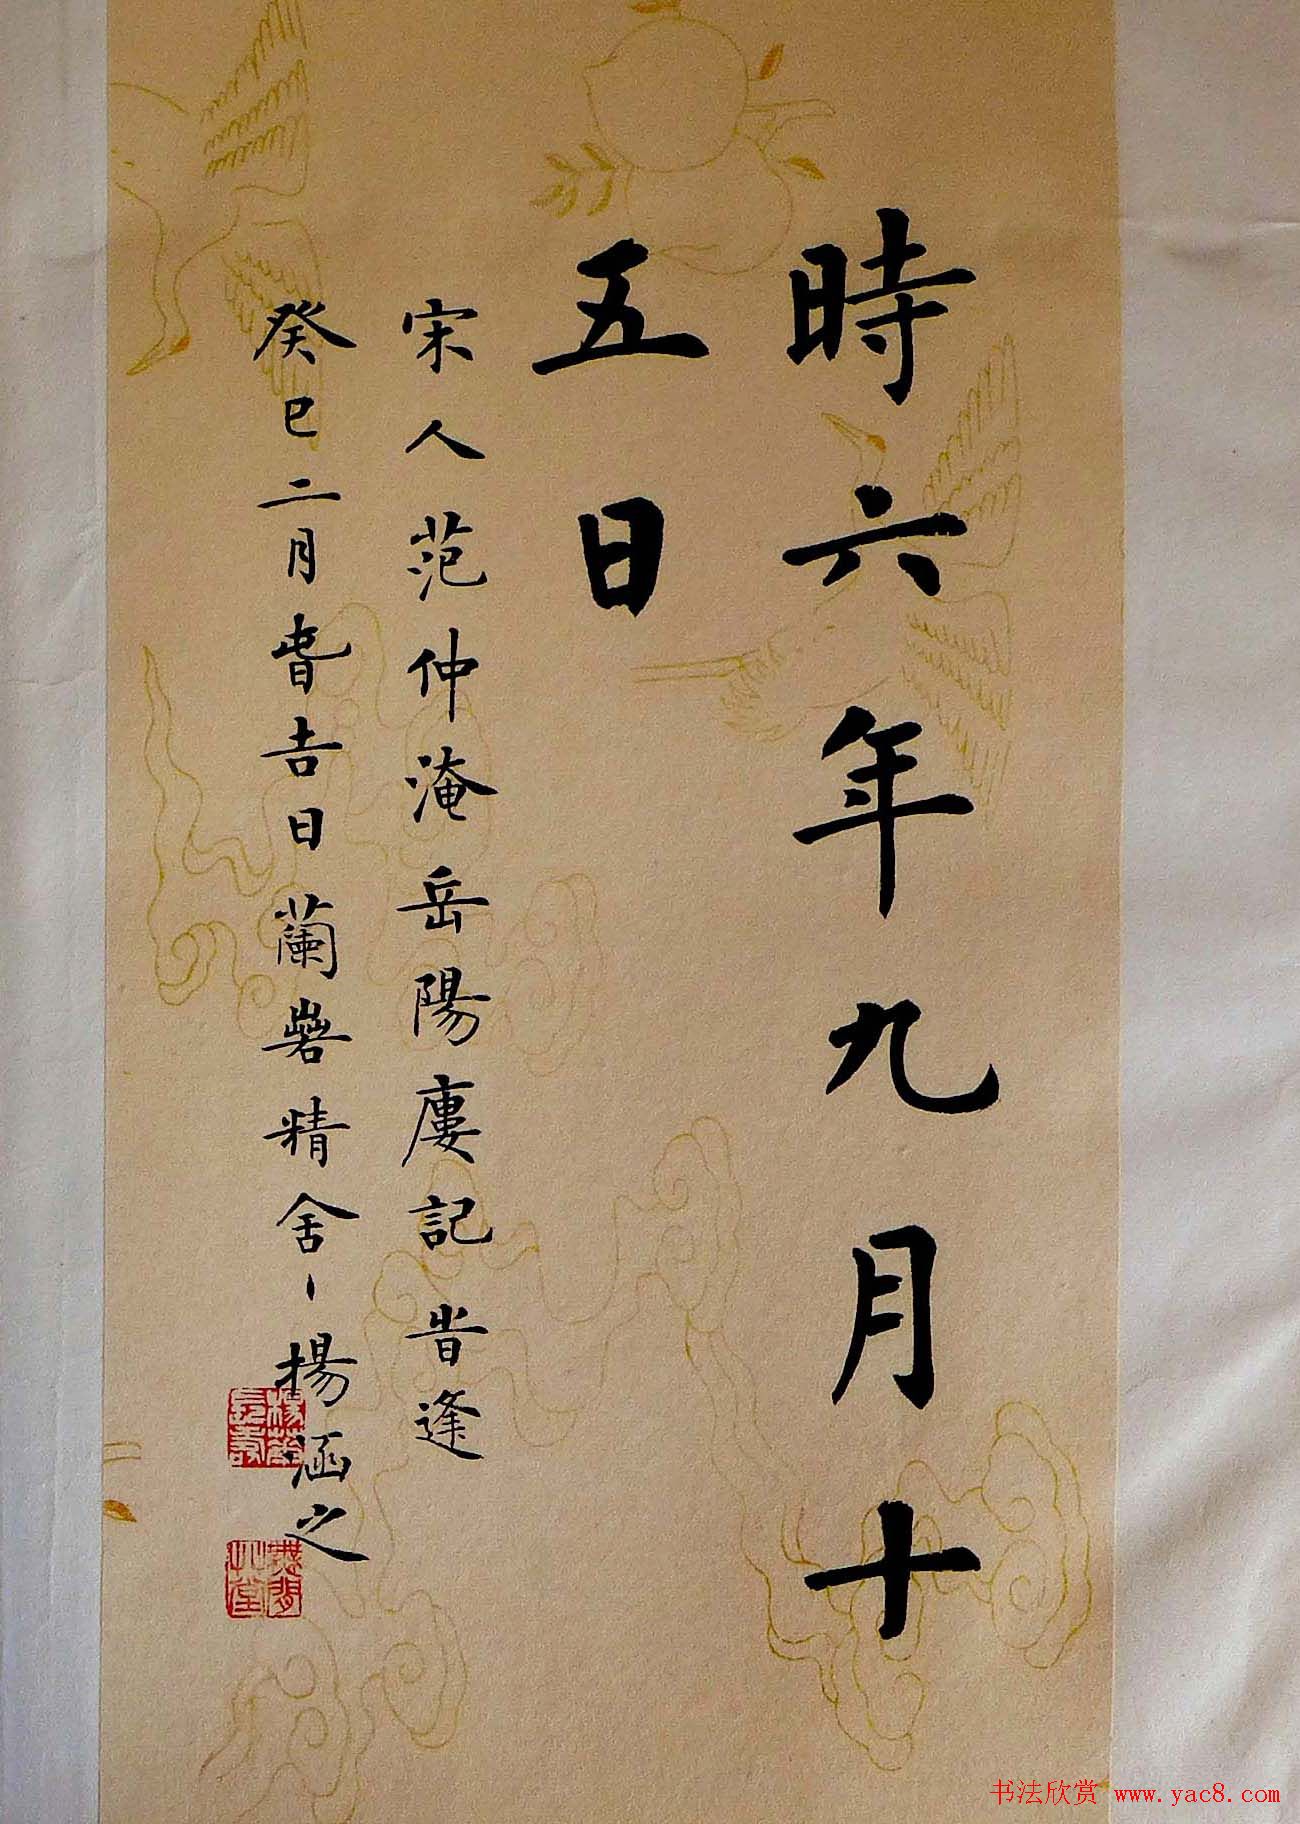 時六年九月十
五日
宋人范仲淹岳陽廔記旹逢
癸巳二月旾吉日蘭礐精舍丶揚涵之
书法欣赏 www.yac8.com